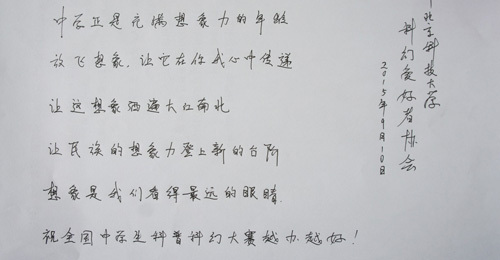 中学正是充满想象力的年龄
放飞想象,让它在你我心中传递
让这想象洒遍大江南北
让民族的想象力登上新的台阶
想象是我们看得最远的眼睛.
祝全国中学生科普科幻大赛越办越好!
北京科技大学
科幻爱好者协会
2015年9月10日